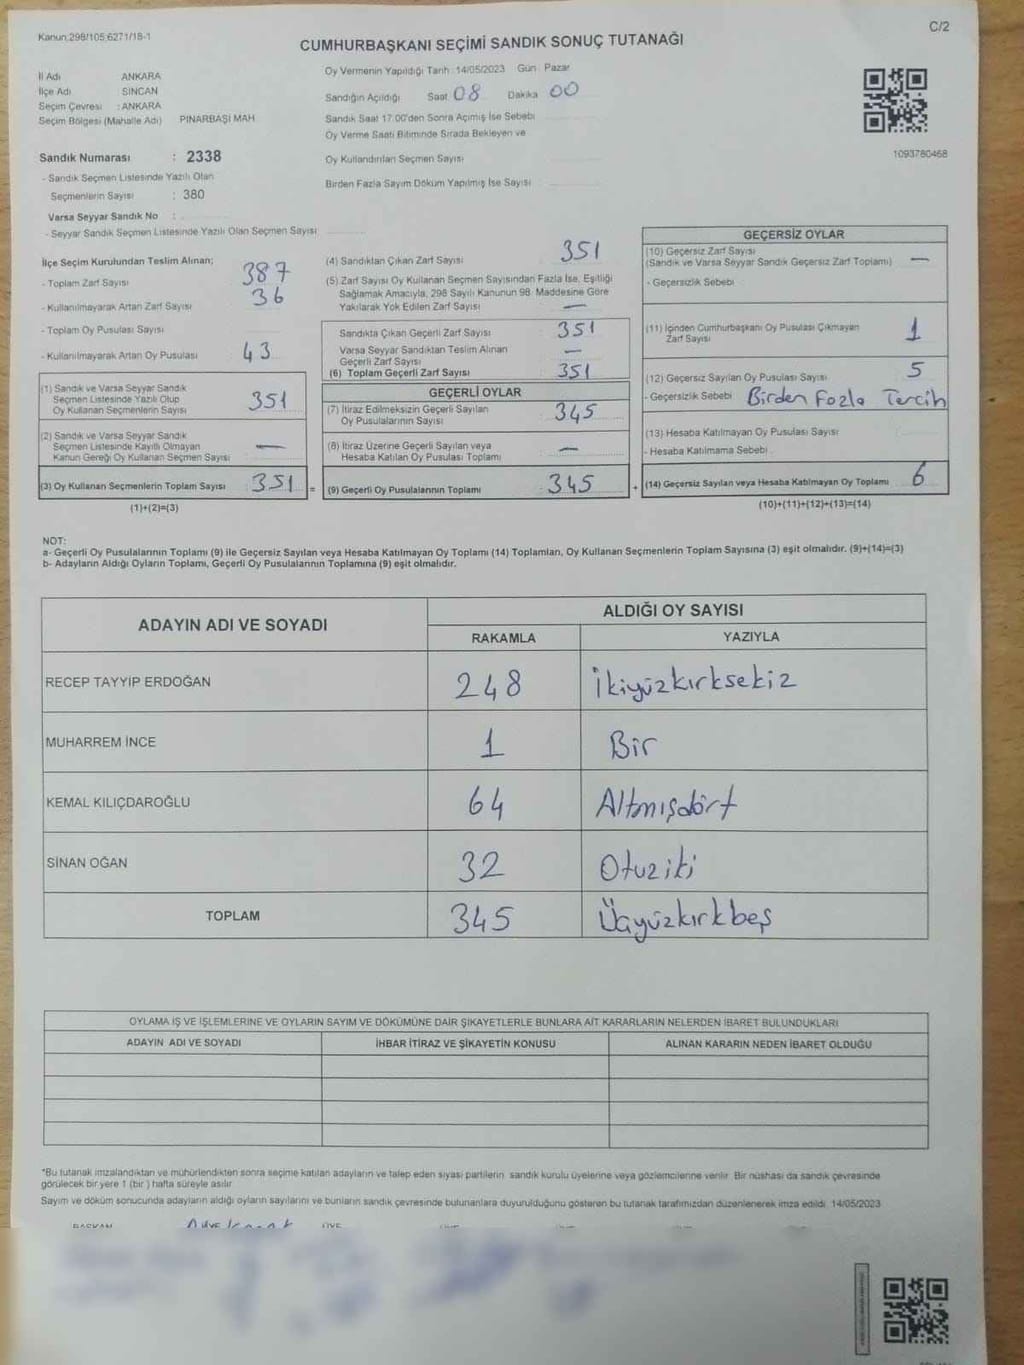 Kanun:298/105,6271/18-1
C/2
CUMHURBAŞKANI SEÇİMİ SANDIK SONUÇ TUTANAĞI
İl Adı ANKARA
İlçe Adı SİNCAN
Seçim Çevresi : ANKARA
Seçim Bölgesi (Mahalle Adı) PINARBAŞI MAH
Oy Vermenin Yapıldığı Tarih :14/05/2023 Gün : Pazar
Sandığın Açıldığı Saat 08 Dakika 00
Sandık Saat 17:00'den Sonra Açılmış İse Sebebi
Oy Verme Saati Bitiminde Sırada Bekleyen ve
Oy Kullandırılan Seçmen Sayısı
Birden Fazla Sayım Döküm Yapılmış İse Sayısı
1093780468
Sandık Numarası : 2338
- Sandık Seçmen Listesinde Yazılı Olan
Seçmenlerin Sayısı : 380
Varsa Seyyar Sandık No :
- Seyyar Sandık Seçmen Listesinde Yazılı Olan Seçmen Sayısı
İlçe Seçim Kurulundan Teslim Alınan;
- Toplam Zarf Sayısı 387
- Kullanılmayarak Artan Zarf Sayısı 36
- Toplam Oy Pusulası Sayısı
- Kullanılmayarak Artan Oy Pusulası 43
(1) Sandık ve Varsa Seyyar Sandık
Seçmen Listesinde Yazılı Olup
Oy Kullanan Seçmenlerin Sayısı 351
(2) Sandık ve Varsa Seyyar Sandık
Seçmen Listesinde Kayıtlı Olmayan
Kanun Gereği Oy Kullanan Seçmen Sayısı —
(3) Oy Kullanan Seçmenlerin Toplam Sayısı : 351 =
(1)+(2)=(3)
(4) Sandıktan Çıkan Zarf Sayısı 351
(5) Zarf Sayısı Oy Kullanan Seçmen Sayısından Fazla İse, Eşitliği
Sağlamak Amacıyla, 298 Sayılı Kanunun 98. Maddesine Göre
Yakılarak Yok Edilen Zarf Sayısı —
Sandıkta Çıkan Geçerli Zarf Sayısı 351
Varsa Seyyar Sandıktan Teslim Alınan
Geçerli Zarf Sayısı —
(6) Toplam Geçerli Zarf Sayısı 351
GEÇERLİ OYLAR
(7) İtiraz Edilmeksizin Geçerli Sayılan
Oy Pusulalarının Sayısı 345
(8) İtiraz Üzerine Geçerli Sayılan veya
Hesaba Katılan Oy Pusulası Toplamı —
(9) Geçerli Oy Pusulalarının Toplamı : 345 +
GEÇERSİZ OYLAR
(10) Geçersiz Zarf Sayısı
(Sandık ve Varsa Seyyar Sandık Geçersiz Zarf Toplamı) —
- Geçersizlik Sebebi
(11) İçinden Cumhurbaşkanı Oy Pusulası Çıkmayan
Zarf Sayısı 1
(12) Geçersiz Sayılan Oy Pusulası Sayısı 5
- Geçersizlik Sebebi Birden Fazla Tercih
(13) Hesaba Katılmayan Oy Pusulası Sayısı
- Hesaba Katılmama Sebebi
(14) Geçersiz Sayılan veya Hesaba Katılmayan Oy Toplamı 6
(10)+(11)+(12)+(13)=(14)
NOT:
a- Geçerli Oy Pusulalarının Toplamı (9) ile Geçersiz Sayılan veya Hesaba Katılmayan Oy Toplamı (14) Toplamları, Oy Kullanan Seçmenlerin Toplam Sayısına (3) eşit olmalıdır. (9)+(14)=(3)
b- Adayların Aldığı Oyların Toplamı, Geçerli Oy Pusulalarının Toplamına (9) eşit olmalıdır.
ADAYIN ADI VE SOYADI
ALDIĞI OY SAYISI
RAKAMLA YAZIYLA
RECEP TAYYİP ERDOĞAN 248 İkiyüzkırksekiz
MUHARREM İNCE 1 Bir
KEMAL KILIÇDAROĞLU 64 Altmışdört
SİNAN OĞAN 32 Otuziki
TOPLAM 345 Üçyüzkırkbeş
OYLAMA İŞ VE İŞLEMLERİNE VE OYLARIN SAYIM VE DÖKÜMÜNE DAİR ŞİKAYETLERLE BUNLARA AİT KARARLARIN NELERDEN İBARET BULUNDUKLARI
ADAYIN ADI VE SOYADI İHBAR İTİRAZ VE ŞİKAYETİN KONUSU ALINAN KARARIN NEDEN İBARET OLDUĞU
*Bu tutanak imzalandıktan ve mühürlendikten sonra seçime katılan adayların ve talep eden siyasi partilerin sandık kurulu üyelerine veya gözlemcilerine verilir. Bir nüshası da sandık çevresinde
görülecek bir yere 1 (bir) hafta süreyle asılır.
Sayım ve döküm sonucunda adayların aldığı oyların sayılarını ve bunların sandık çevresinde bulunanlara duyurulduğunu gösteren bu tutanak tarafımızdan düzenlenerek imza edildi. 14/05/2023
BAŞKAN ÜYE ÜYE ÜYE